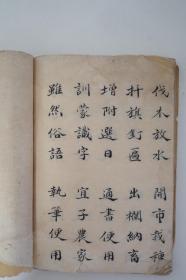 伐木放水　開市栽種
扦旗釘匾　出欄納畜
增附選日　通書便用
訓蒙識字　宜子農家
雖然俗語　執筆便用